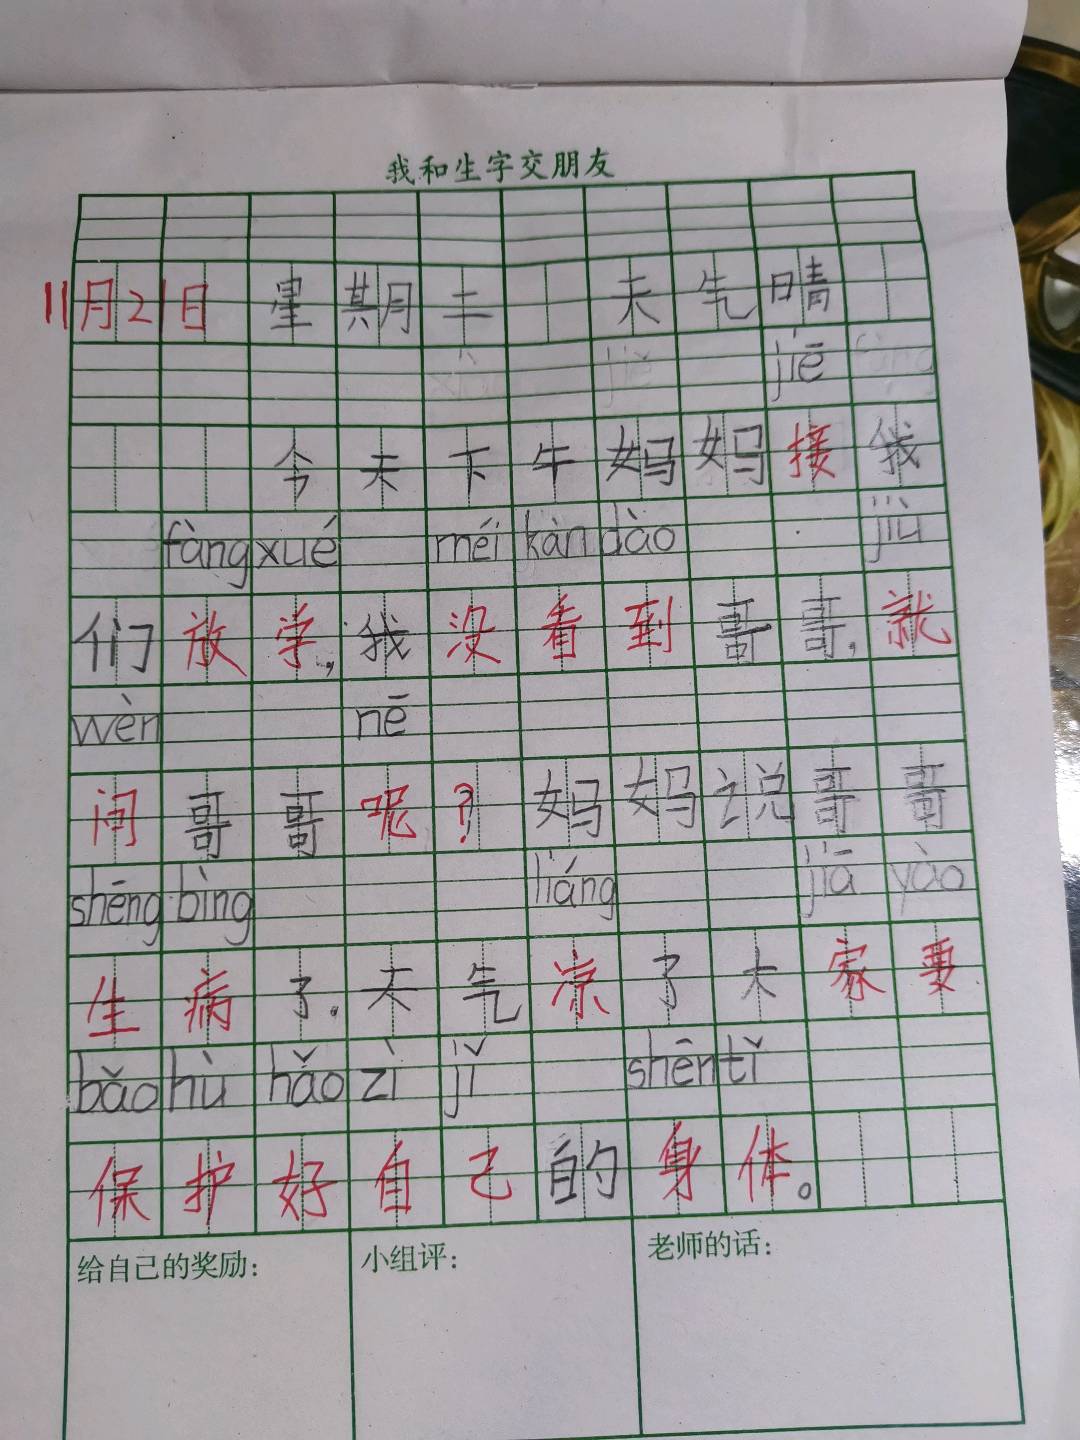 我和生字交朋友
11月21日 星期二 天气晴
jiē
今天下午妈妈接我
fàng xué méi kàn dào jiù
们放学,我没看到哥哥,就
wèn nē
问哥哥呢?妈妈说哥哥
shēng bìng liáng jiā yào
生病了.天气凉了大家要
bǎo hù hǎo zì jǐ shēn tǐ
保护好自己的身体。
给自己的奖励:
小组评:
老师的话: